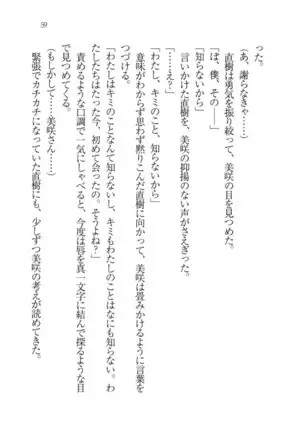 59
った。
(あ、謝らなきゃ……)
直樹は勇気を振り絞って、美咲の目を見つめた。
「ぼ、僕、その――」
「知らないから」
言いかけた直樹を、美咲の抑揚のない声がさえぎった。
「……え?」
「わたし、キミのこと、知らないから」
意味がわからず思わず黙りこんだ直樹に向かって、美咲は畳みかけるように言葉を
つづける。
「わたしはキミのことなんて知らないし、キミもわたしのことはなにも知らない。わ
たしたちはたった今、初めて会ったの。そうよね?」
責めるような口調で一気にしゃべると、今度は唇を真一文字に結んで探るような目
で見つめてくる。
(もしかして……美咲さん……)
緊張でカチカチになっていた直樹にも、少しずつ美咲の考えが読めてきた。